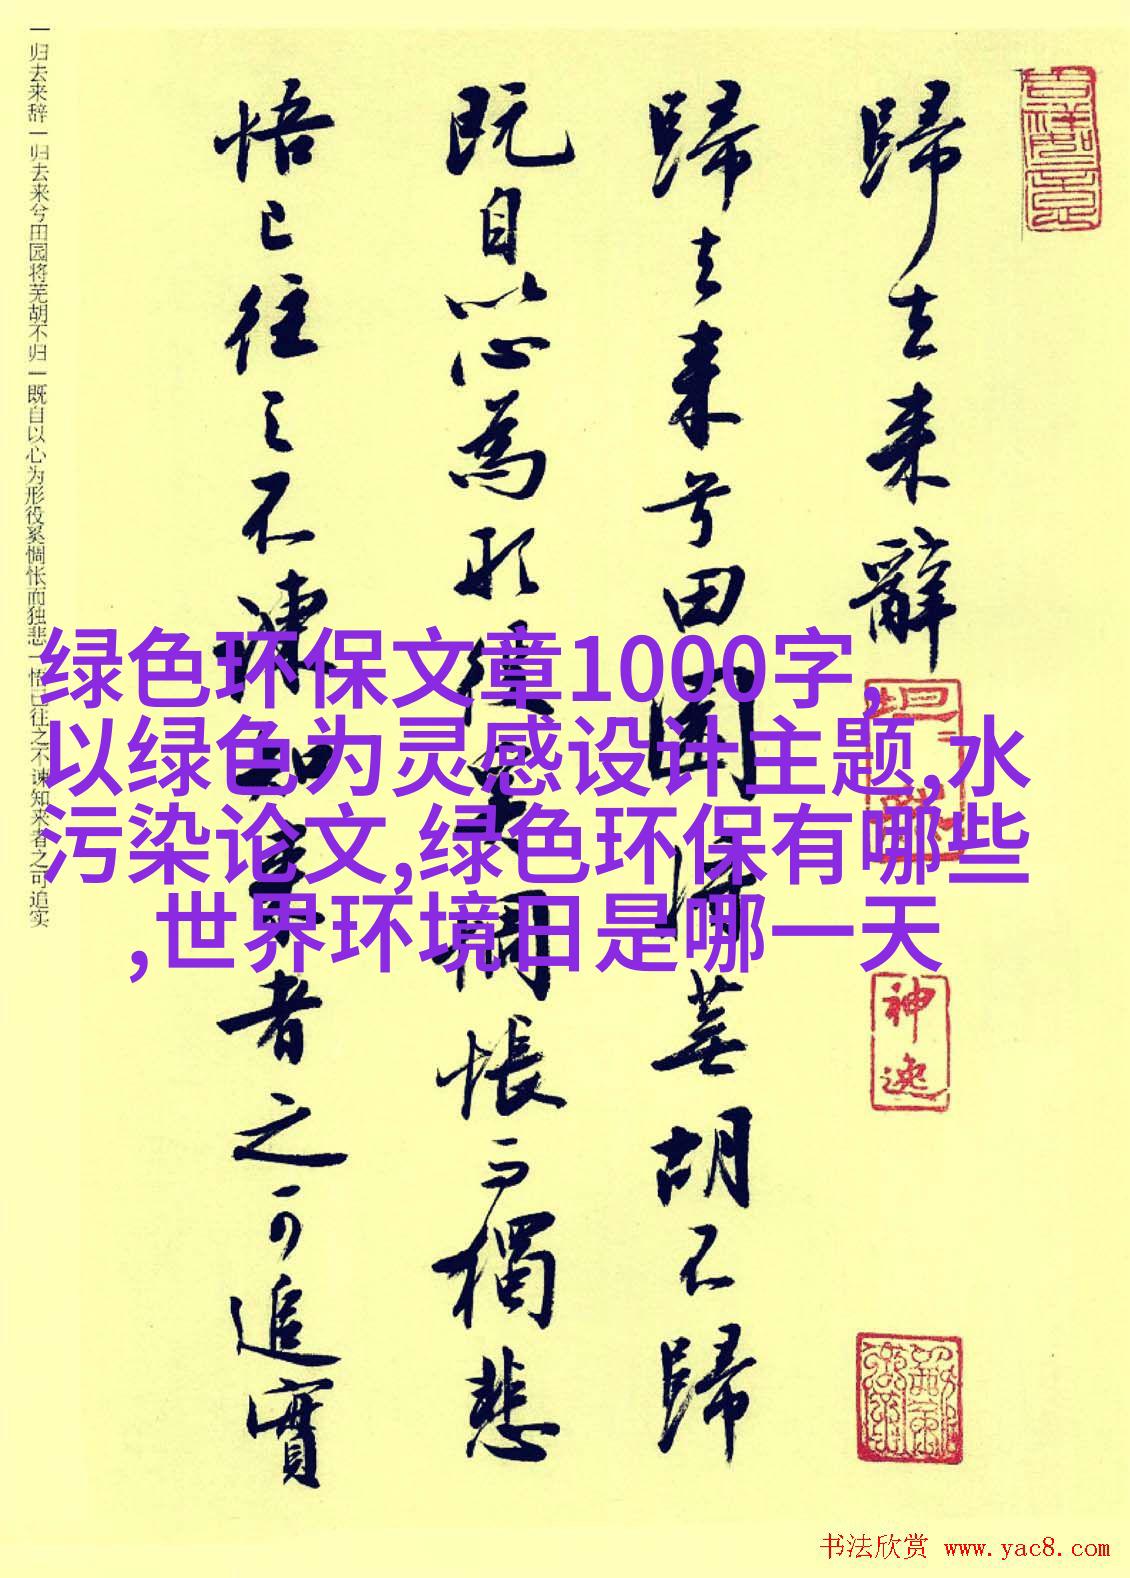 歸去来辭
歸去来兮田園将蕪胡不歸
既自以心為形役奚惆悵而獨悲
悟已往之不諫知来者之可追實
一归去来辞一归去来兮田园将芜胡不归一既自以心为形役奚惆怅而独悲一悟已往之不谏知来者之可追实
绿色环保文章1000字,
以绿色为灵感设计主题,水
污染论文,绿色环保有哪些
,世界环境日是哪一天
神逸
书法欣赏 www.yac8.com